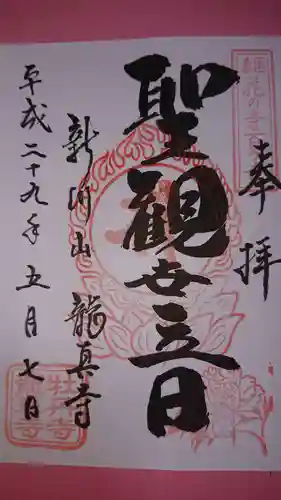 奉拝
聖観世音
新川山 龍真寺
平成二十九年五月七日
牡丹寺